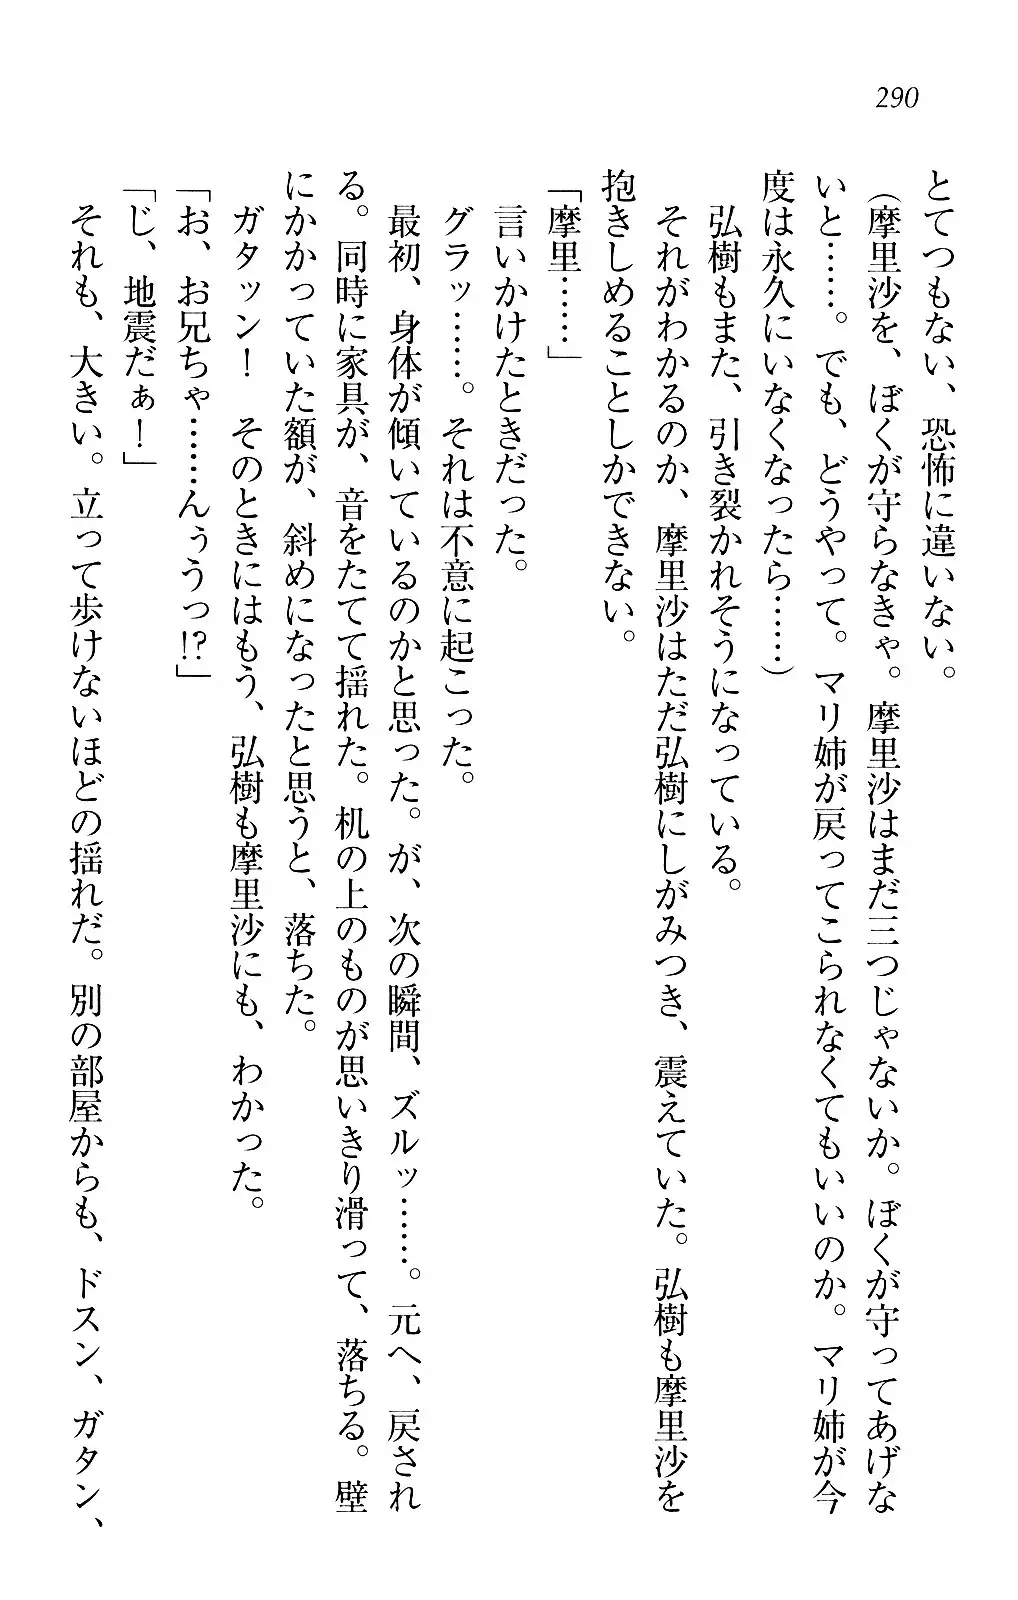 290
とてつもない、恐怖に違いない。
（摩里沙を、ぼくが守らなきゃ。摩里沙はまだ三つじゃないか。ぼくが守ってあげな
いと……。でも、どうやって。マリ姉が戻ってこられなくてもいいのか。マリ姉が今
度は永久にいなくなったら……）
　弘樹もまた、引き裂かれそうになっている。
　それがわかるのか、摩里沙はただ弘樹にしがみつき、震えていた。弘樹も摩里沙を
抱きしめることしかできない。
「摩里……」
　言いかけたときだった。
　グラッ……。それは不意に起こった。
　最初、身体が傾いているのかと思った。が、次の瞬間、ズルッ……。元へ、戻され
る。同時に家具が、音をたてて揺れた。机の上のものが思いきり滑って、落ちる。壁
にかかっていた額が、斜めになったと思うと、落ちた。
　ガタッン！　そのときにはもう、弘樹も摩里沙にも、わかった。
「お、お兄ちゃ……んぅうっ!?」
「じ、地震だぁ！」
　それも、大きい。立って歩けないほどの揺れだ。別の部屋からも、ドスン、ガタン、